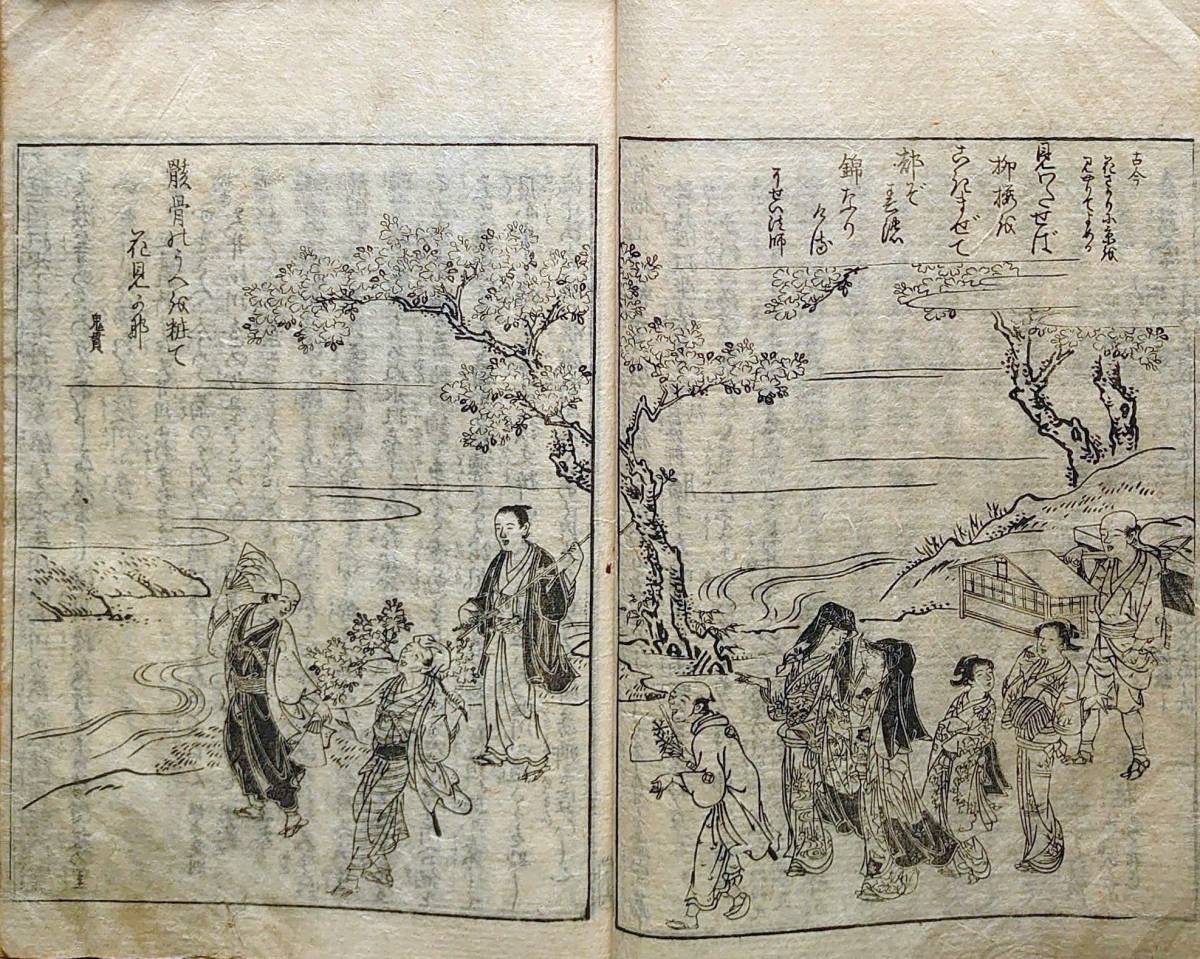 古今
花さかりに京を
見やりてよめる
見わたせば
柳桜を
こきまぜて
都ぞ
春の
錦なり
ける
そせい法師
骸骨のうへを粧て
花見かな
鬼貫